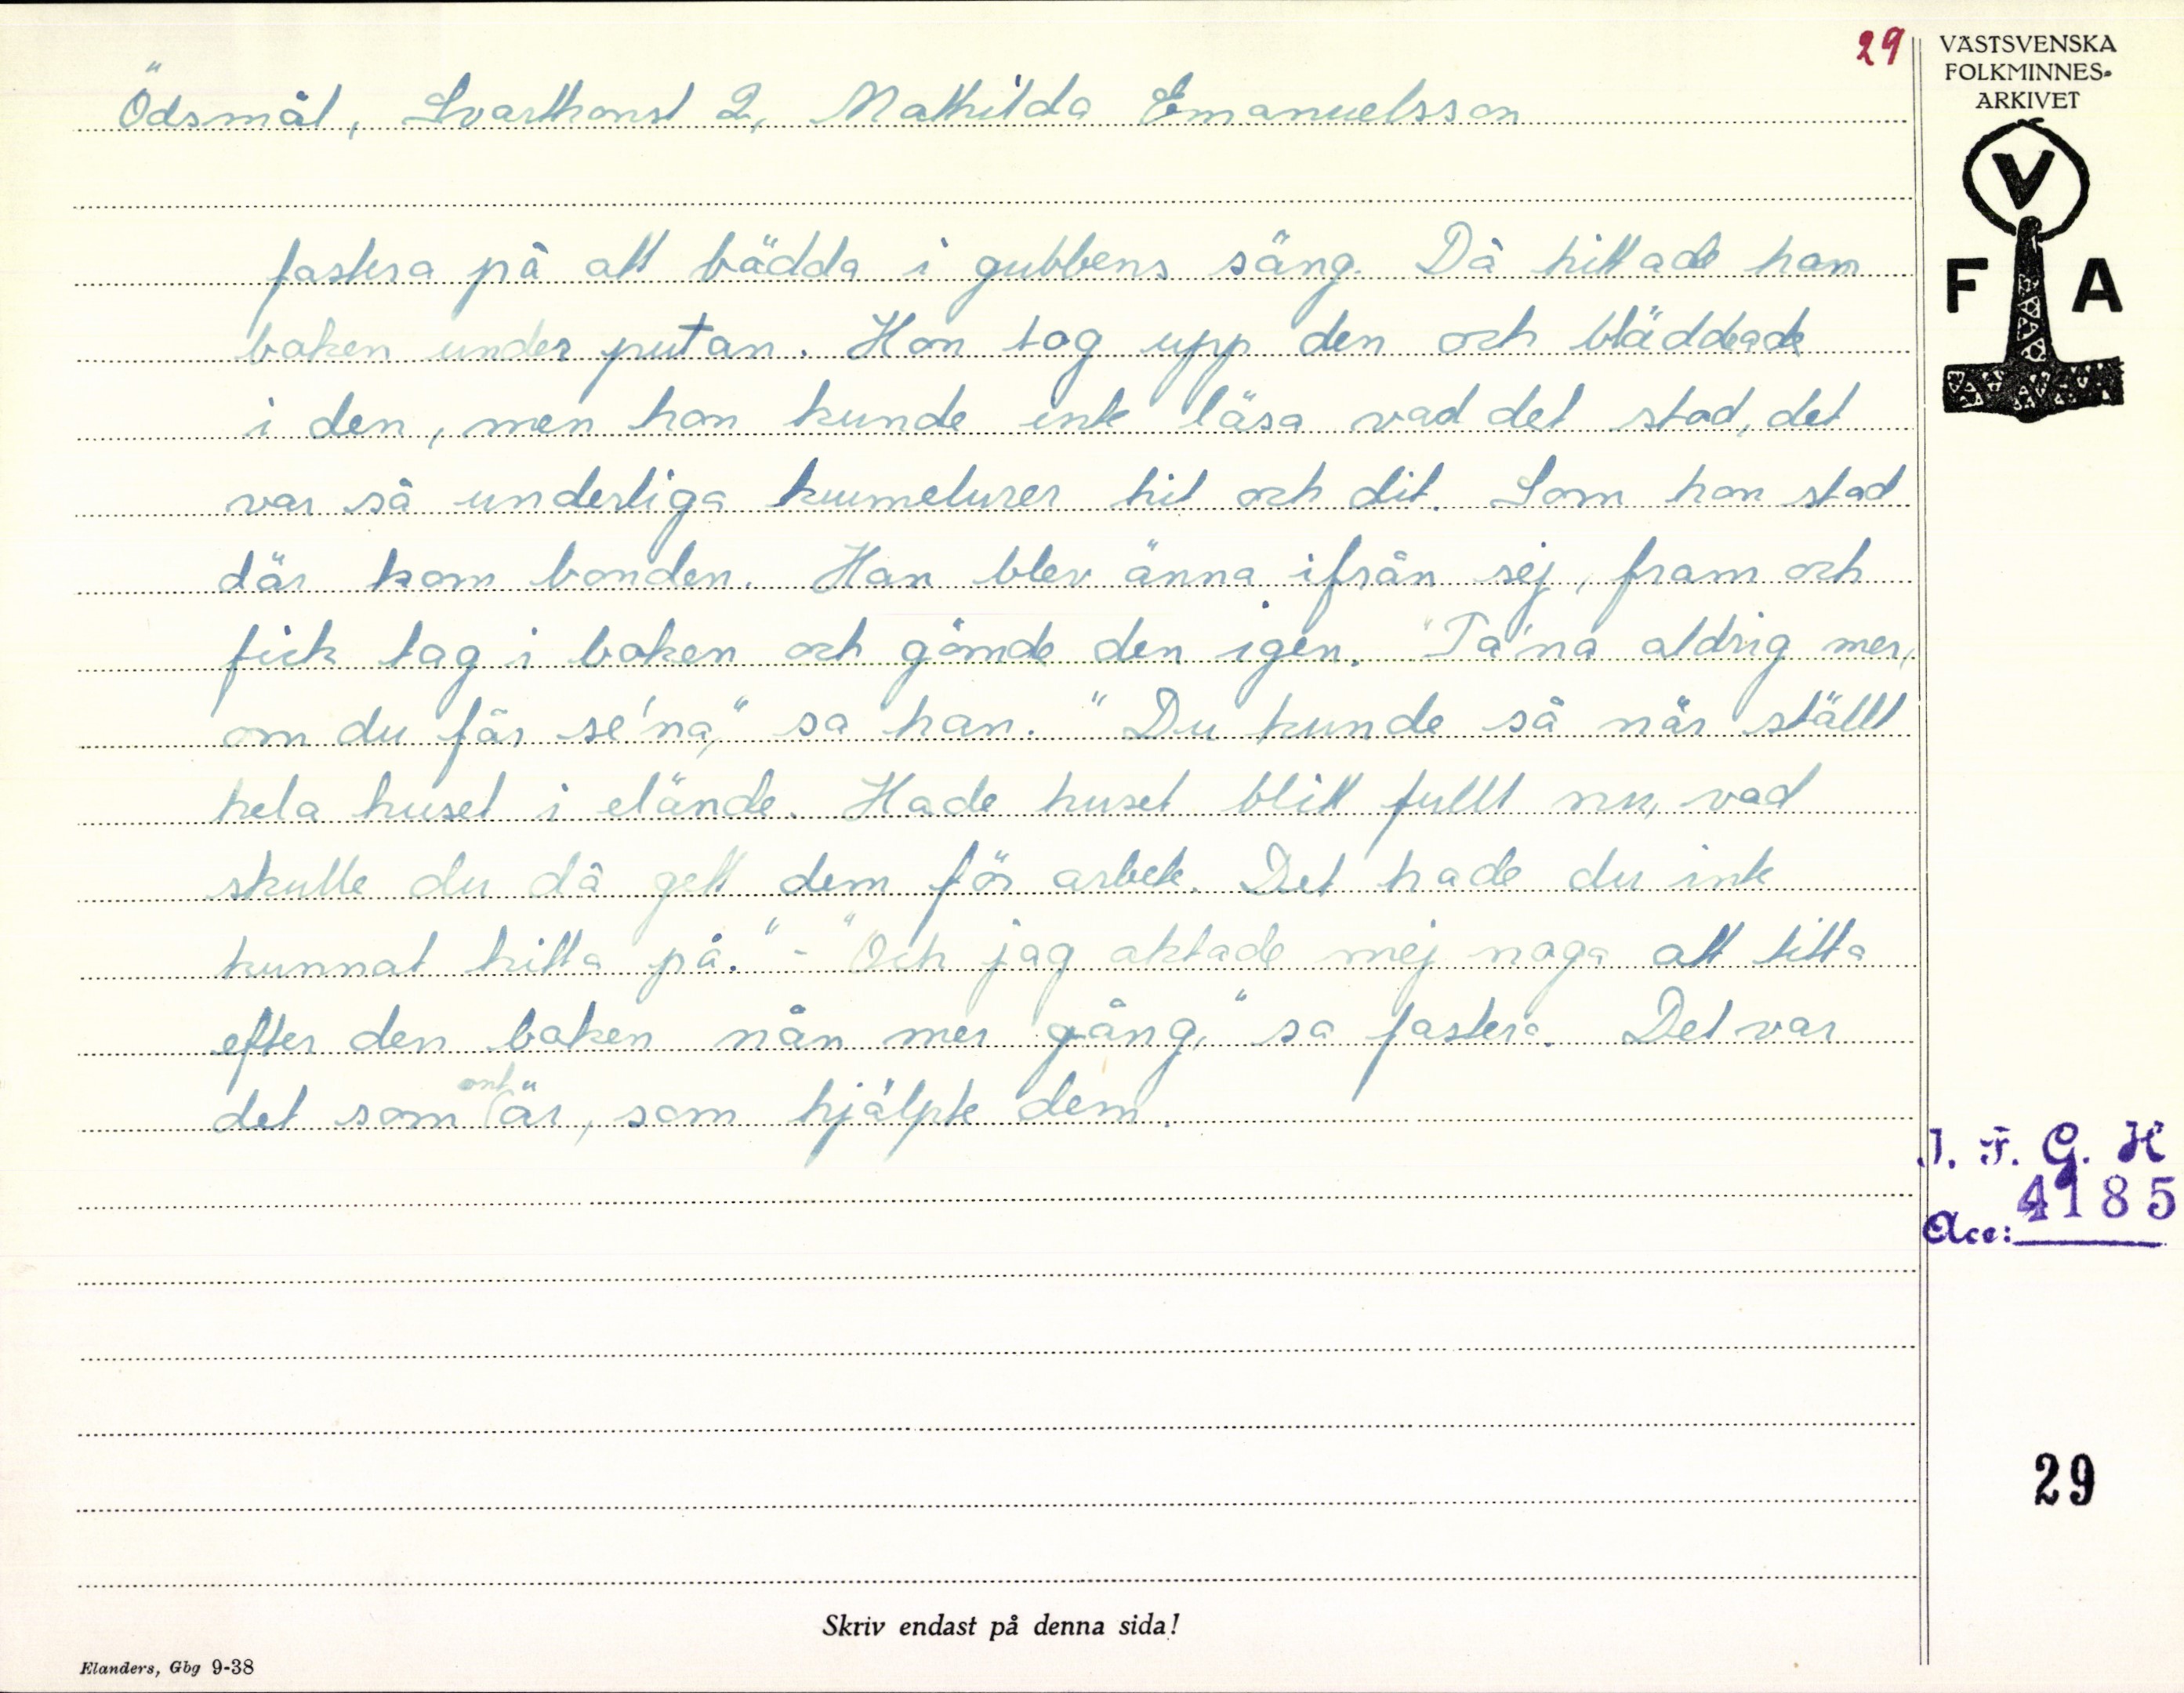 29
VÄSTSVENSKA
FOLKMINNES-
ARKIVET
V
F A
Ödsmål, Svarthonst 2, Mathilda Emanuelsson
fastera på att bädda i gubbens säng. Då hittade hon
boken under putan. Hon tog upp den och bläddrade
i den, men hon kunde inte läsa vad det stod, det
var så underliga krumelurer hit och dit. Som hon stod
där kom bonden. Han blev änna ifrån sej, fram och
fick tag i boken och gömde den igen. "Ta'na aldrig mer,
om du får se'na," sa han. "Du kunde så när ställt
hela huset i elände. Hade huset blitt fullt nu, vad
skulle du då gett dem för arbete. Det hade du inte
kunnat hitta på." - "Och jag aktade mej noga att titta
efter den boken nån mer gång," sa fastera. Det var
det som ont är, som hjälpte dem.
I. F. G. H
Acc: 4185
29
Skriv endast på denna sida!
Elanders, Gbg 9-38